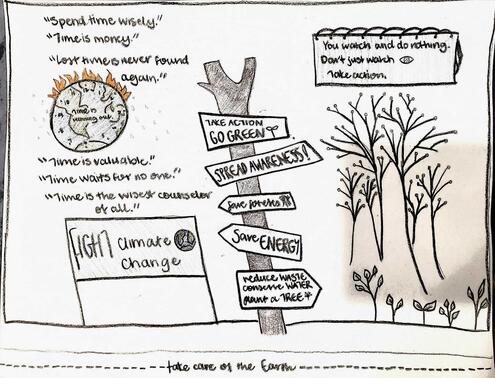 "Spend time wisely."
"Time is money."
"Lost time is never found
again."
Time is
running out.
"Time is valuable."
"Time waits for no one."
"Time is the wisest counselor
of all."
FIGHT Climate
Change
TAKE ACTION
GO GREEN
SPREAD AWARENESS!
Save forests
Save ENERGY
reduce WASTE
conserve WATER
plant a TREE
You watch and do nothing.
Don't just watch
Take action.
take care of the Earth